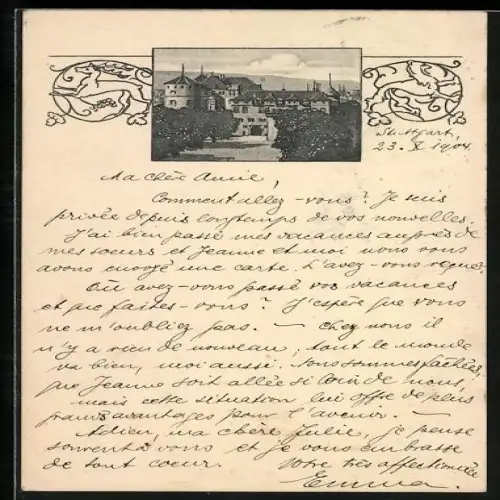 Stuttgart,
23. X 1904
Ma chère Annie,
Comment allez-vous? Je suis
privée depuis longtemps de vos nouvelles.
J'ai bien passé mes vacances auprès de
mes soeurs et Jeanne et moi nous vous
avons envoyé une carte. L'avez-vous reçue?
Où avez-vous passé vos vacances
et que faites-vous? J'espère que vous
ne m'oubliez pas. — Chez nous il
n'y a rien de nouveau, tout le monde
va bien, moi aussi. Nous sommes fachées,
que Jeanne soit allée si loin de nous,
mais cette situation lui offre de plus
grands avantages pour l'avenir. —
Adieu, ma chère Julie, je pense
souvent à vous et je vous embrasse
de tout coeur. Votre très affectionnée
Emma.